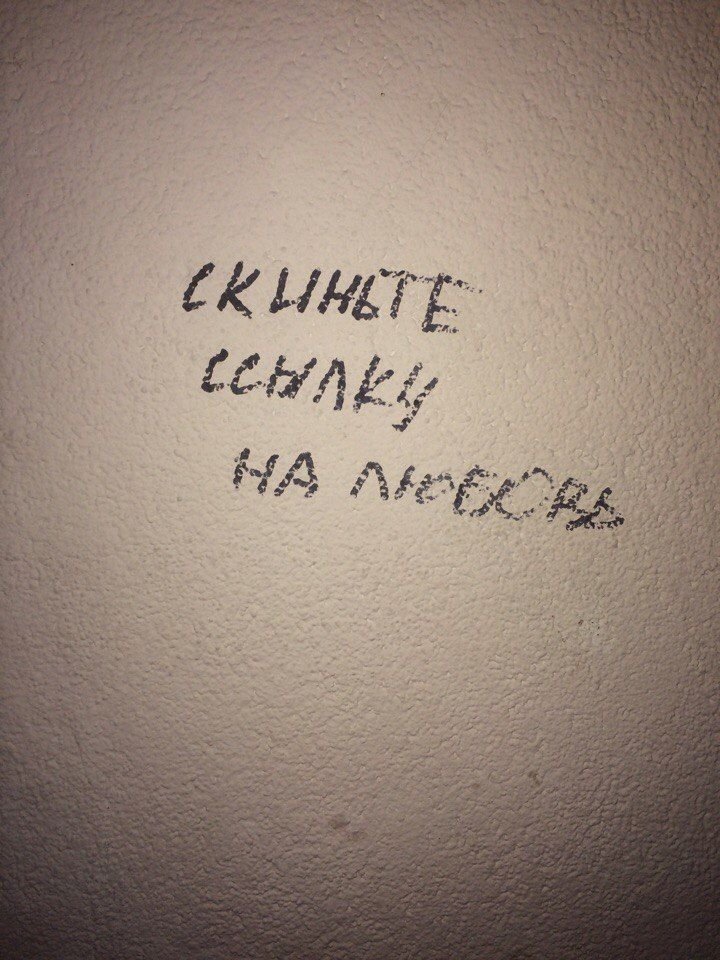 СКИНЬТЕ
ССЫЛКУ
НА ЛЮБОВЬ